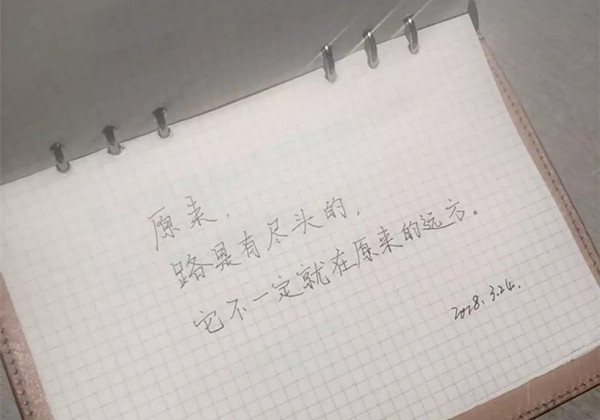 原来，
路是有尽头的，
它不一定就在原来的远方。
2018.3.24.